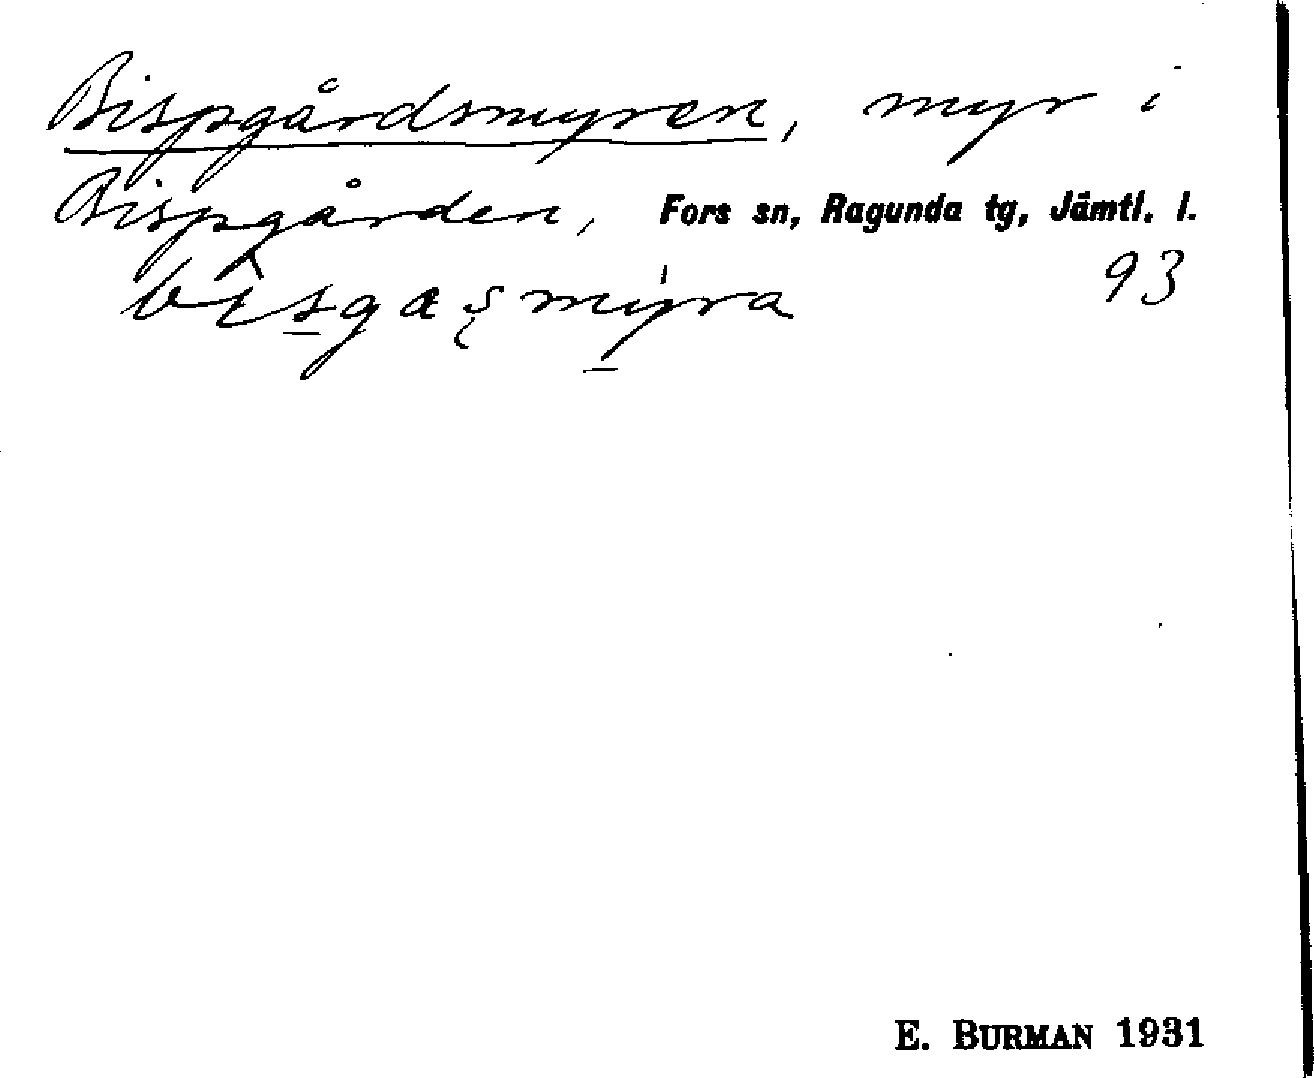 Bispgårdsmyren, myr i
Bispgården, Fors sn, Ragunda tg, Jämtl. l.
93
E. BURMAN 1931